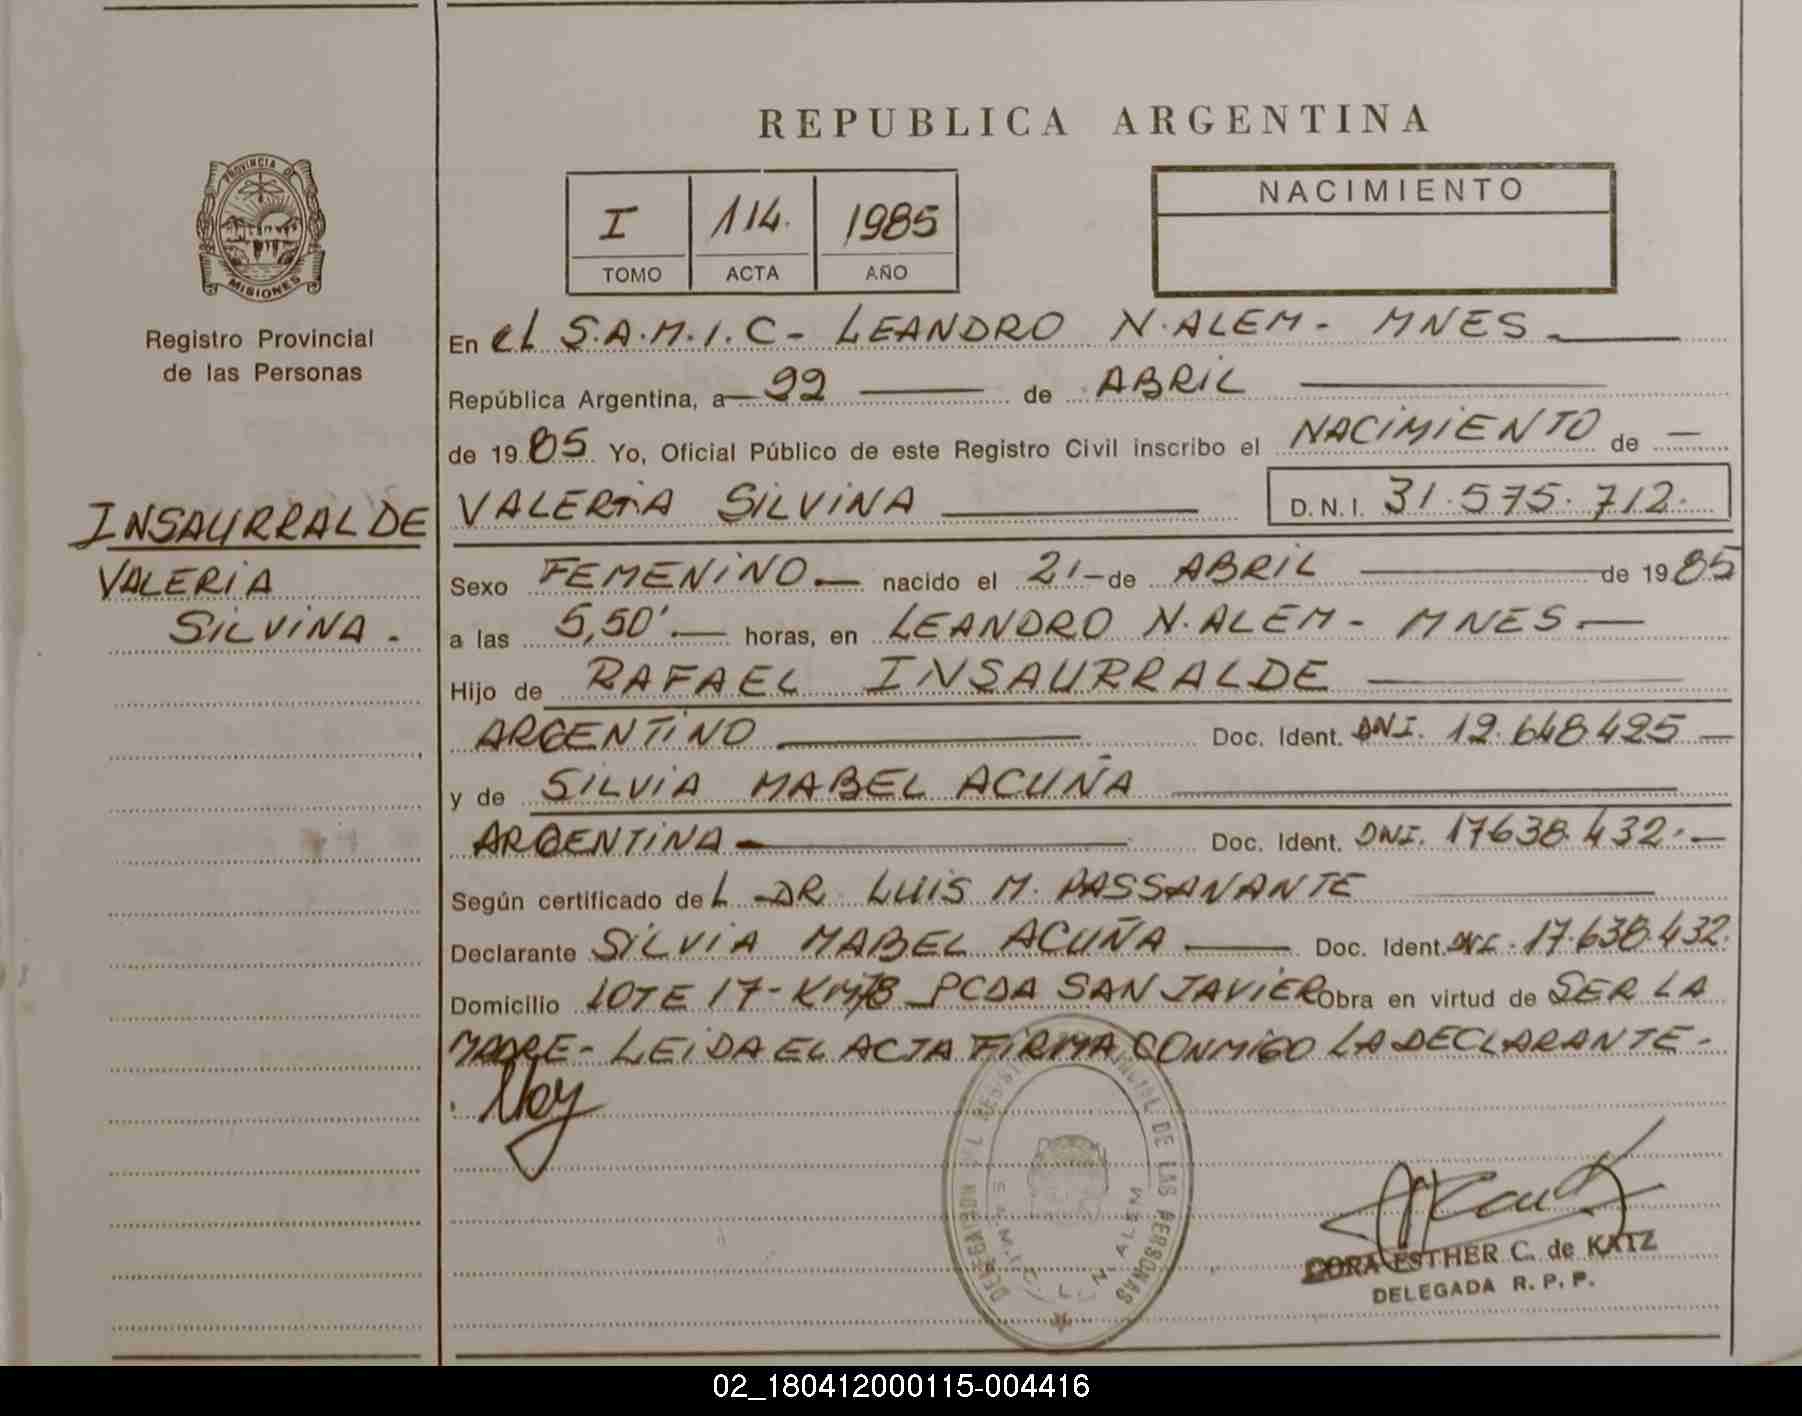 REPUBLICA ARGENTINA
PROVINCIA DE
MISIONES
Registro Provincial
de las Personas
I 114. 1985
TOMO ACTA AÑO
NACIMIENTO
En el S.A.M.I.C- LEANDRO N. ALEM- MNES
República Argentina, a 22 de ABRIL
de 1985 Yo, Oficial Público de este Registro Civil inscribo el NACIMIENTO de
INSAURRALDE
VALERIA
SILVINA.
VALERIA SILVINA D.N.I. 31.575.712.
Sexo FEMENINO nacido el 21 de ABRIL de 1985
a las 5,50' horas, en LEANDRO N. ALEM- MNES
Hijo de RAFAEL INSAURRALDE
ARGENTINO Doc. Ident. DNI. 12.648.425
y de SILVIA MABEL ACUÑA
ARGENTINA Doc. Ident. DNI. 17638.432.
Según certificado del DR. LUIS M. PASSANANTE
Declarante SILVIA MABEL ACUÑA Doc. Ident. DNI. 17.638.432.
Domicilio LOTE 17- KM/8 PCDA SAN JAVIER Obra en virtud de SER LA
MADRE- LEIDA EL ACTA FIRMA CONMIGO LA DECLARANTE-
DE LAS PERSONAS
S.A.M.I.C. L. N. ALEM
CORA ESTHER C. de KATZ
DELEGADA R. P. P.
02_180412000115-004416